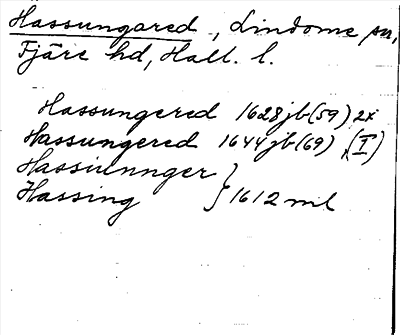 Hassungared, Lindome sn,
Fjäre hd, Hall. l.
Hassungered 1628 jb (59) 2x
Hassungered 1644 jb (69) (I)
Hassiunnger
Hassing } 1612 ml